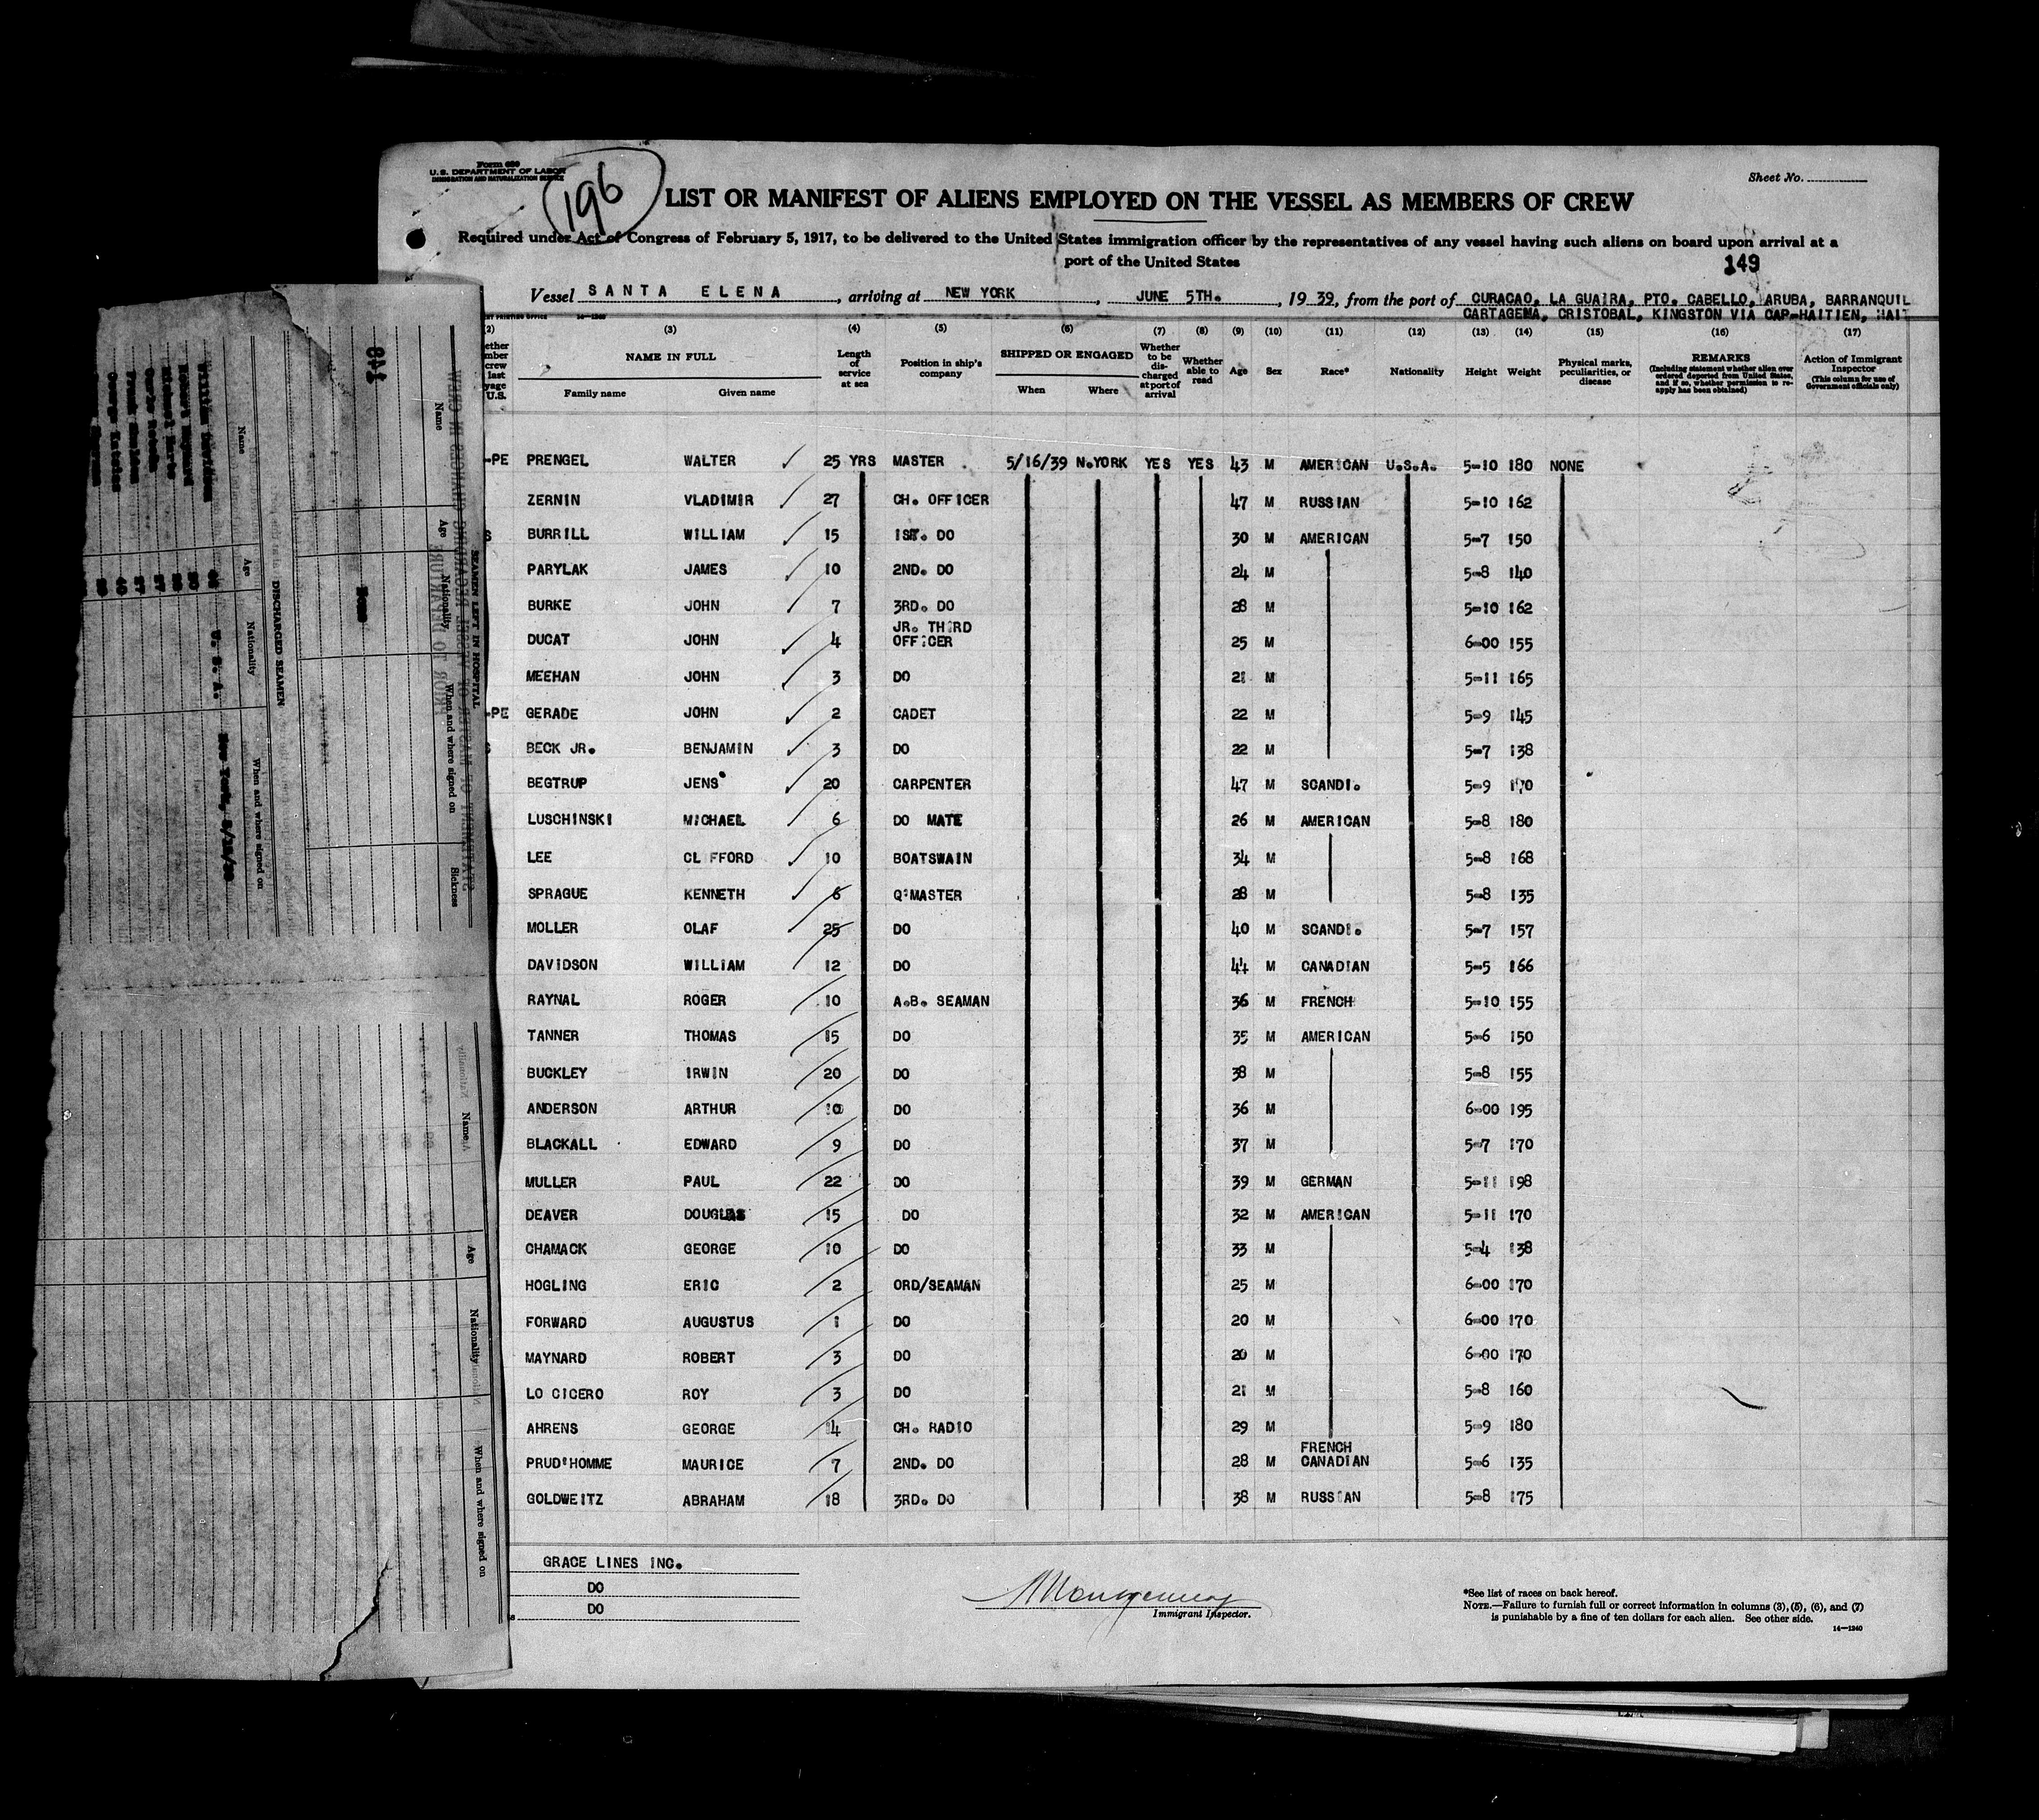 Form 689
U. S. DEPARTMENT OF LABOR
IMMIGRATION AND NATURALIZATION SERVICE
196
Sheet No.
LIST OR MANIFEST OF ALIENS EMPLOYED ON THE VESSEL AS MEMBERS OF CREW
Required under Act of Congress of February 5, 1917, to be delivered to the United States immigration officer by the representatives of any vessel having such aliens on board upon arrival at a
port of the United States
149
Vessel SANTA ELENA, arriving at NEW YORK, JUNE 5TH., 1939, from the port of CURACAO, LA GUAIRA, PTO. CABELLO, ARUBA, BARRANQUIL
CARTAGEMA, CRISTOBAL, KINGSTON VIA CAP-HAITIEN, HAIT
(2) (3) (4) (5) (6) (7) (8) (9) (10) (11) (12) (13) (14) (15) (16) (17)
NAME IN FULL Family name Given name Length of service at sea Position in ship's company SHIPPED OR ENGAGED When Where Whether to be discharged at port of arrival Whether able to read Age Sex Race* Nationality Height Weight Physical marks, peculiarities, or disease REMARKS (Including statement whether alien ever ordered deported from United States, and if so, whether permission to reapply has been obtained) Action of Immigrant Inspector (This column for use of Government officials only)
-PE PRENGEL WALTER 25 YRS MASTER 5/16/39 N.YORK YES YES 43 M AMERICAN U.S.A. 5-10 180 NONE
ZERNIN VLADIMIR 27 CH. OFFICER 47 M RUSSIAN 5-10 162
S BURRILL WILLIAM 15 1ST. DO 30 M AMERICAN 5-7 150
PARYLAK JAMES 10 2ND. DO 24 M 5-8 140
BURKE JOHN 7 3RD. DO 28 M 5-10 162
DUCAT JOHN 4 JR. THIRD OFFICER 25 M 6-00 155
MEEHAN JOHN 3 DO 21 M 5-11 165
-PE GERADE JOHN 2 CADET 22 M 5-9 145
S BECK JR. BENJAMIN 3 DO 22 M 5-7 138
BEGTRUP JENS 20 CARPENTER 47 M SCANDI. 5-9 170
LUSCHINSKI MICHAEL 6 DO MATE 26 M AMERICAN 5-8 180
LEE CLIFFORD 10 BOATSWAIN 34 M 5-8 168
SPRAGUE KENNETH 6 Q'MASTER 28 M 5-8 135
MOLLER OLAF 25 DO 40 M SCANDI. 5-7 157
DAVIDSON WILLIAM 12 DO 44 M CANADIAN 5-5 166
RAYNAL ROGER 10 A.B. SEAMAN 36 M FRENCH 5-10 155
TANNER THOMAS 15 DO 35 M AMERICAN 5-6 150
BUCKLEY IRWIN 20 DO 38 M 5-8 155
ANDERSON ARTHUR 10 DO 36 M 6-00 195
BLACKALL EDWARD 9 DO 37 M 5-7 170
MULLER PAUL 22 DO 39 M GERMAN 5-11 198
DEAVER DOUGLAS 15 DO 32 M AMERICAN 5-11 170
CHAMACK GEORGE 10 DO 33 M 5-4 138
HOGLING ERIC 2 ORD/SEAMAN 25 M 6-00 170
FORWARD AUGUSTUS 1 DO 20 M 6-00 170
MAYNARD ROBERT 3 DO 20 M 6-00 170
LO CICERO ROY 3 DO 21 M 5-8 160
AHRENS GEORGE 14 CH. RADIO 29 M 5-9 180
PRUD'HOMME MAURICE 7 2ND. DO 28 M FRENCH CANADIAN 5-6 135
GOLDWEITZ ABRAHAM 18 3RD. DO 38 M RUSSIAN 5-8 175
GRACE LINES INC.
DO
DO
Immigrant Inspector.
*See list of races on back hereof.
NOTE.—Failure to furnish full or correct information in columns (3), (5), (6), and (7)
is punishable by a fine of ten dollars for each alien. See other side.
14—1240
148
SEAMEN LEFT IN HOSPITAL
Name Age Nationality When and where signed on Sickness
None
DISCHARGED SEAMEN
Name Age Nationality When and where signed on
U. S. A.
Name Age Nationality When and where signed on